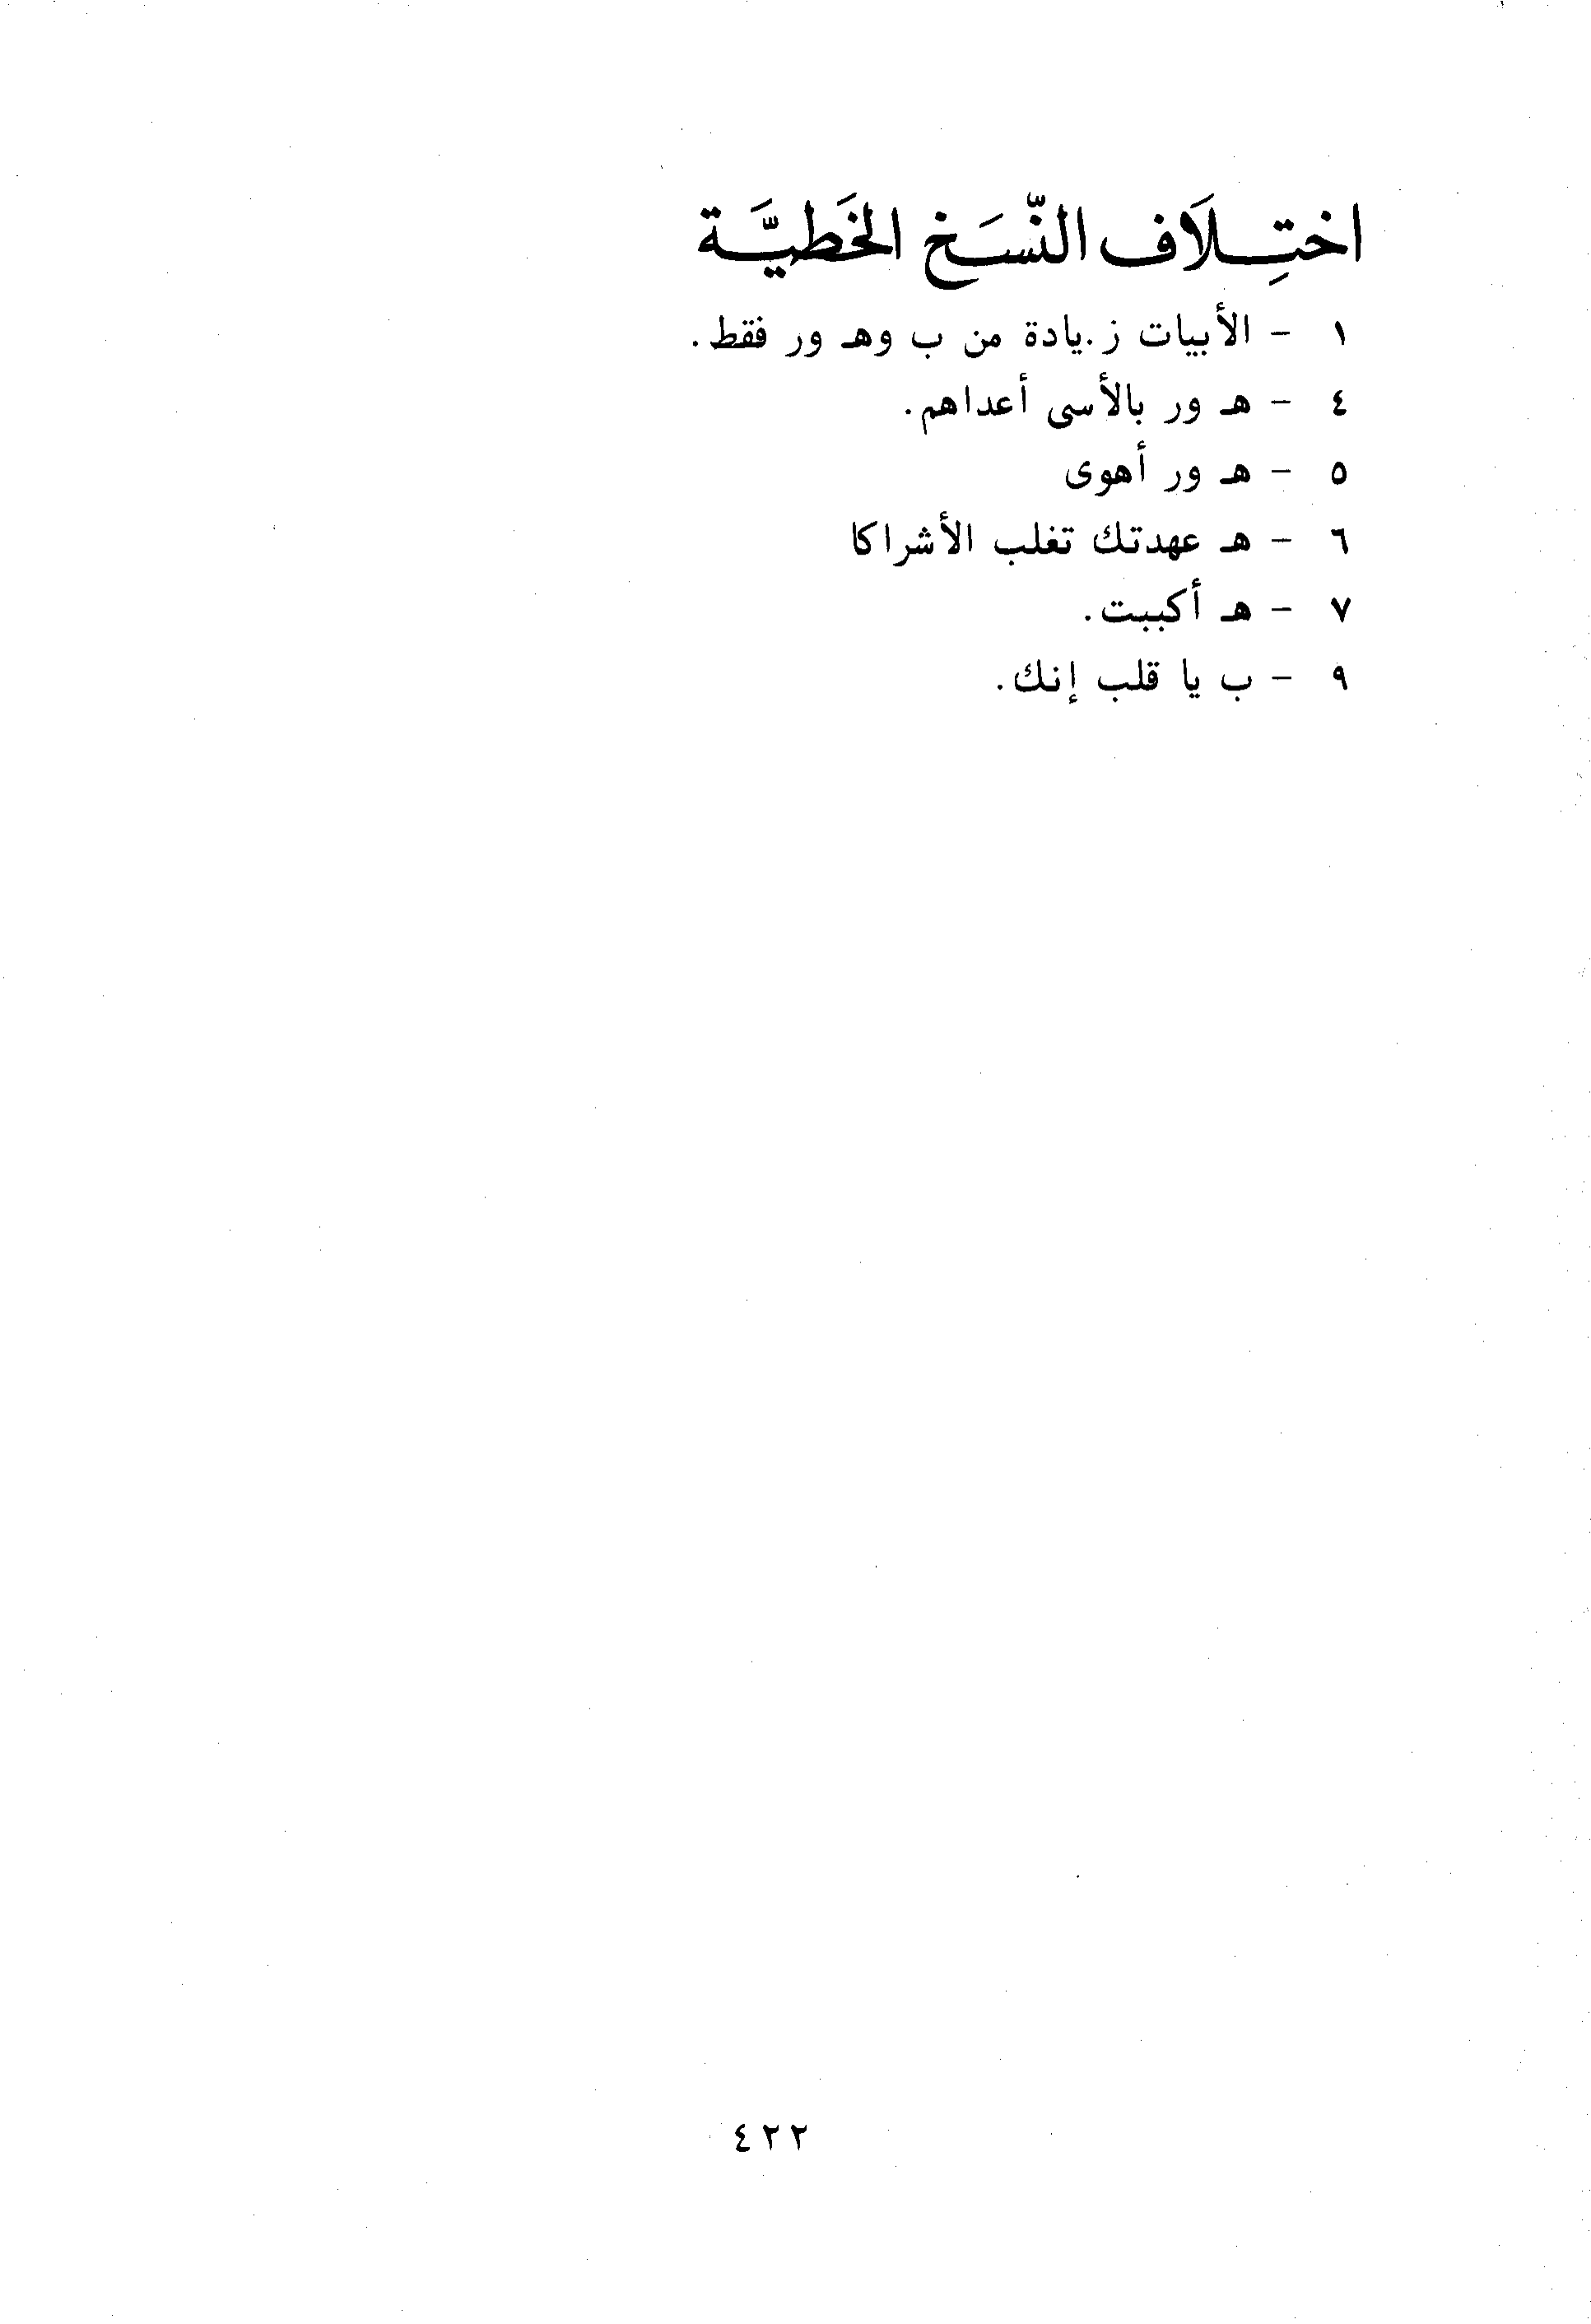 اختِلَاف النّسَخ الخَطيَّة
١ - الأبيات زيادة من ب وهـ ور فقط.
٤ - هـ ور بالأسى أعداهم.
٥ - هـ ور أهوى
٦ - هـ عهدتك تغلب الأشراكا
٧ - هـ أكببت.
٩ - ب يا قلب إنك.
٤٢٢